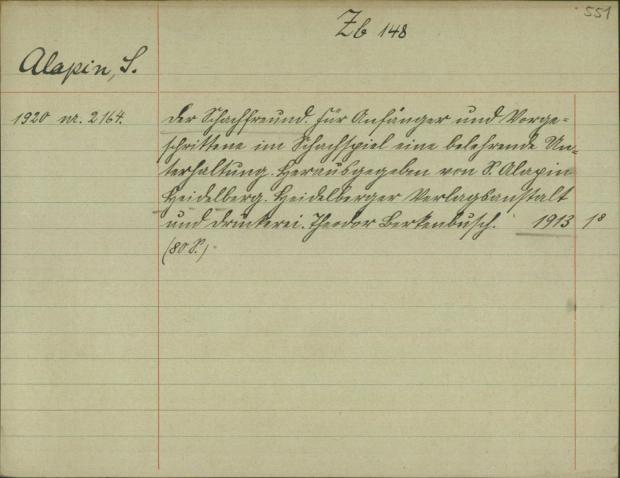 551
Zb 148
Alapin, S.
1920 nr. 2164.
Der Schachfreund. Für Anfänger und Vorge-
schrittene im Schachspiel eine belehrende Un-
terhaltung. Herausgegeben von S. Alapin
Heidelberg. Heidelberger Verlagsanstalt
und Druckerei. Theodor Berkenbusch. 1913 1 8
(80 S.)